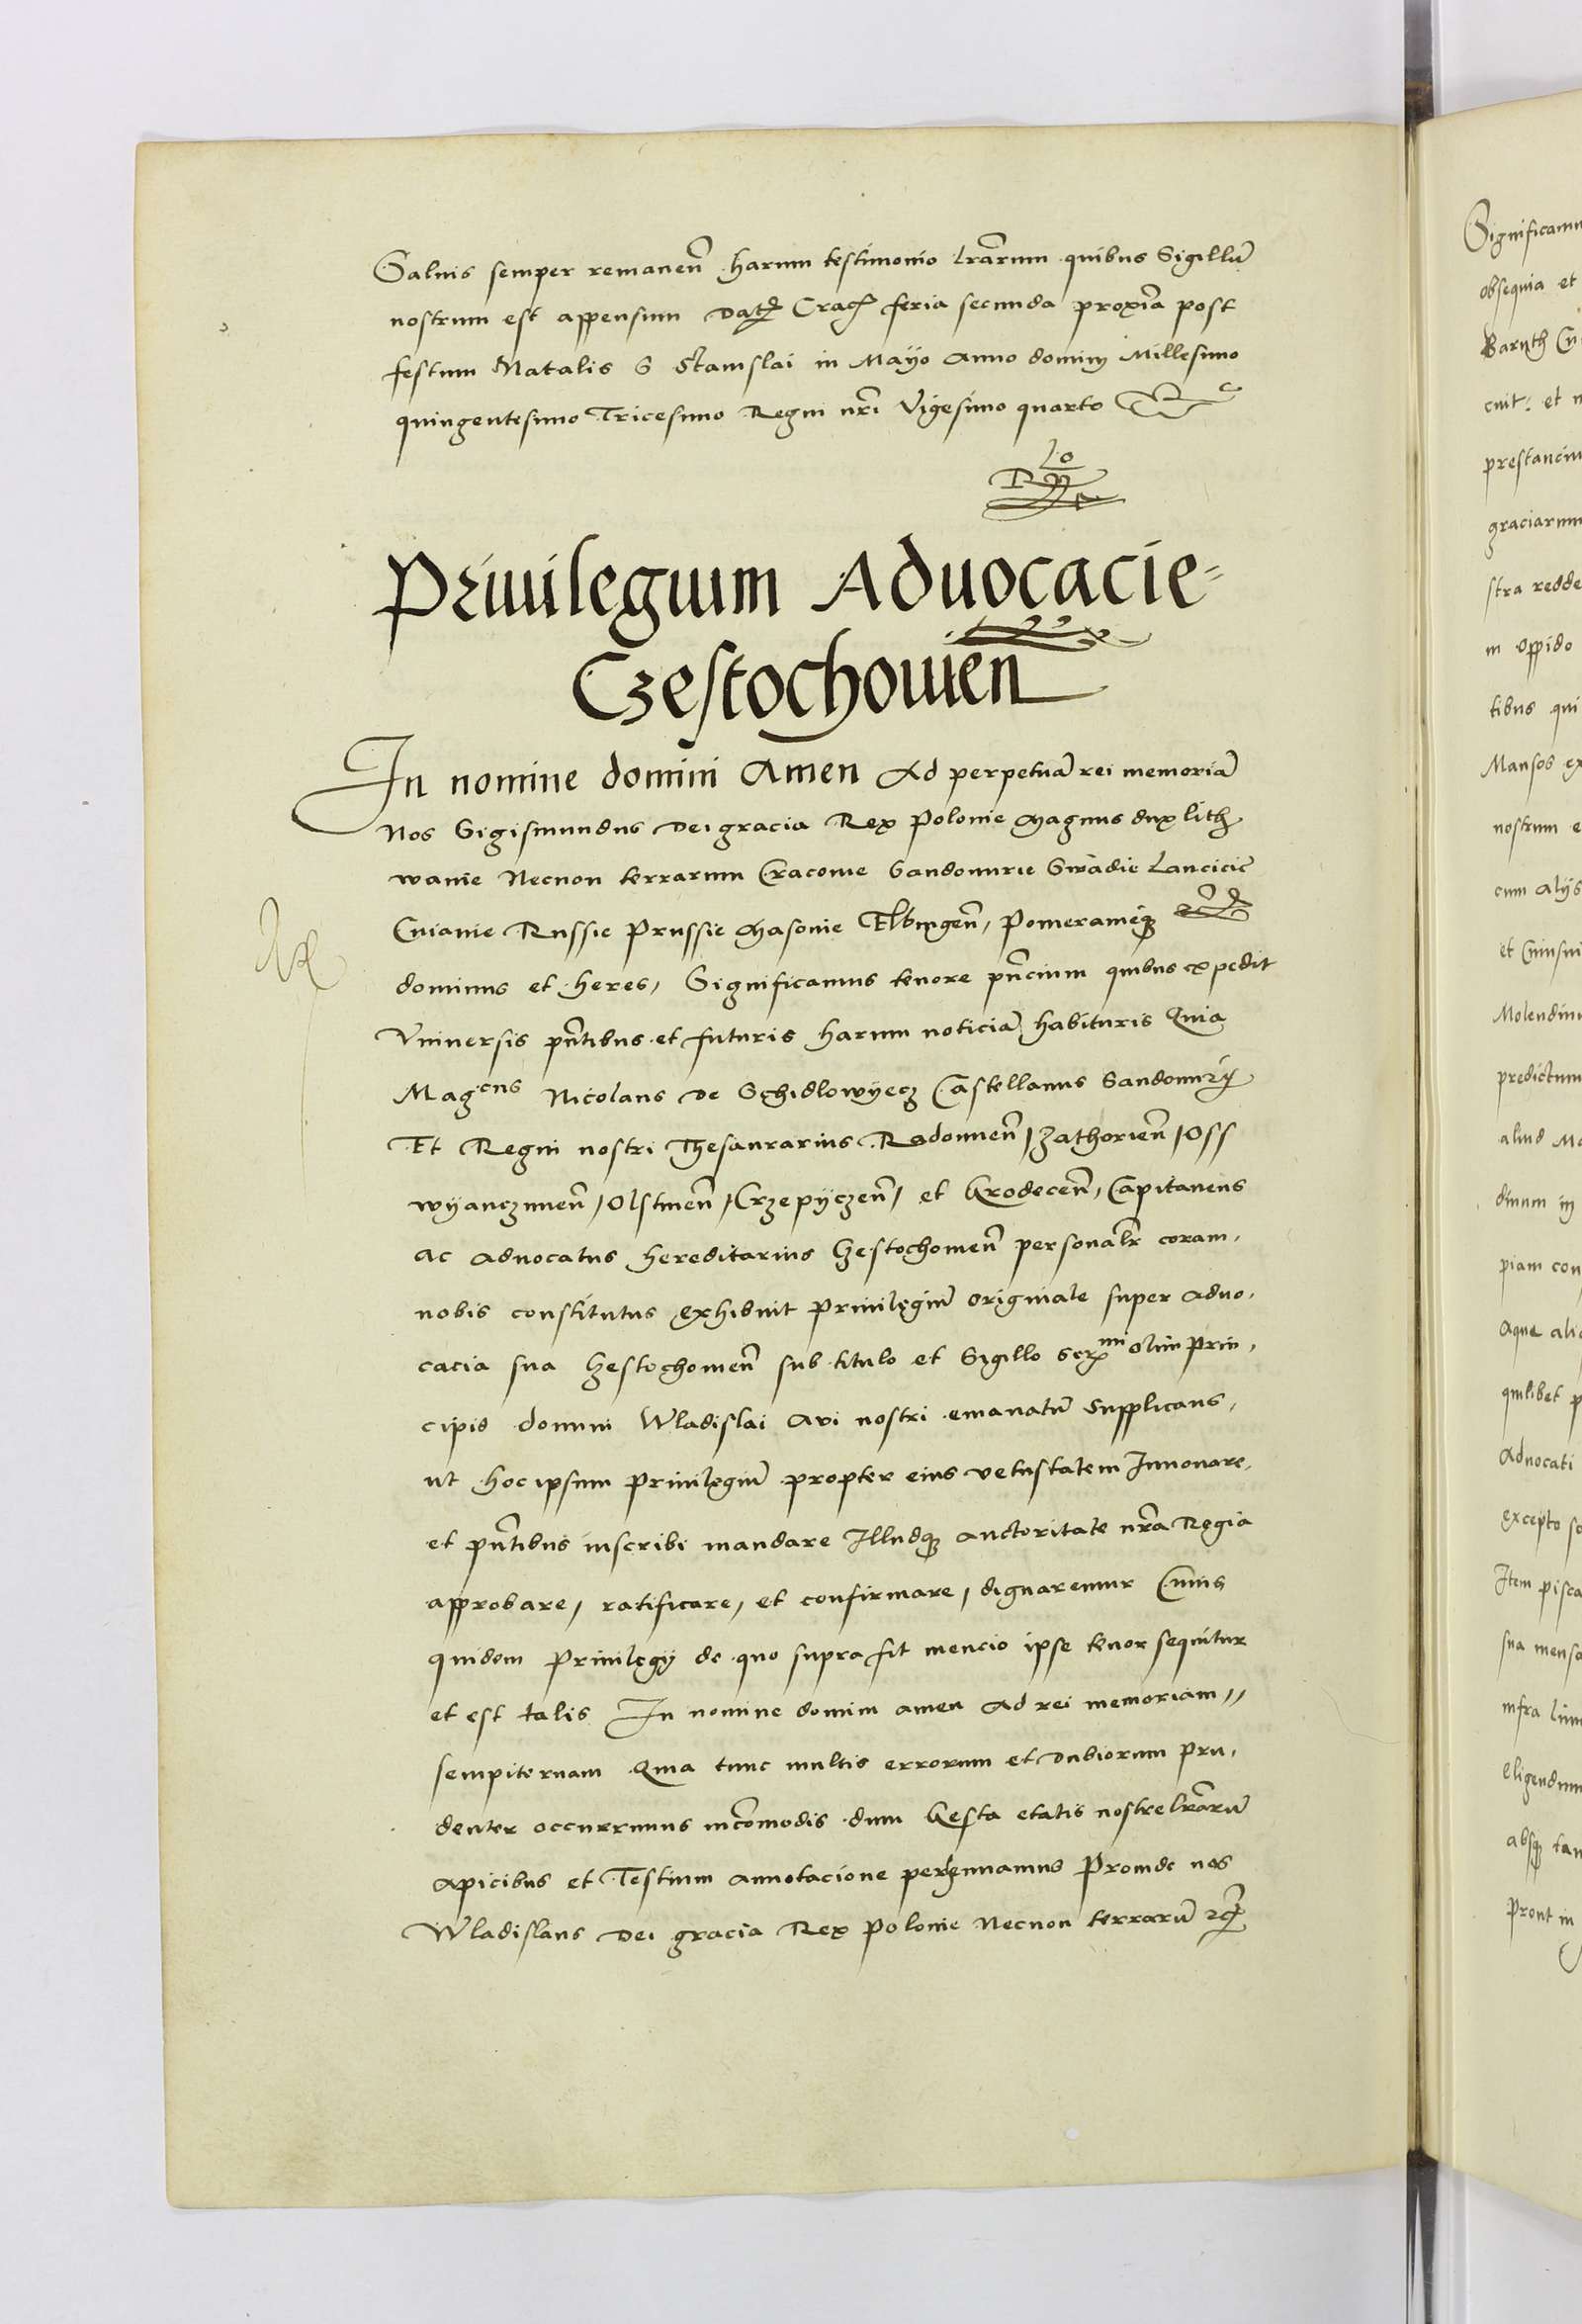 Saluis semper remaneñ harum testimonio lrarum quibus Sigillũ
nostrum est appensum Dat Crac feria secunda proxĩa post
festum Natalis S Stanislai in Mayo Anno dominj Millesimo
quingentesimo Tricesimo Regni nrĩ Vigesimo quarto
Priuilegium Aduocacie
Czestochouien
In nomine domini Amen Ad perpetuã rei memoriã
Nos Sigismundus Dei gracia Rex Polonie Magnus dux lith
wanie Necnon terrarum Cracouie Sandomirie Siradie Lancicie
Cuiauie Russie Prussie Masouie Elbingeñ, Pomeranieq
dominus et heres, Significamus tenore pñcium quibus expedit
Vniuersis pñtibus et futuris harum noticiã habituris Quia
Magcus Nicolaus de Schidlowyecz Castellanus Sandomir
Et Regni nostri Thesaurarius Radomieñ, Zathorieñ, Oss
wyanczimeñ, Olstineñ, Crzepyczeñ, et Grodeceñ, Capitaneus
ac aduocatus hereditarius Czestochouieñ personalr coram
nobis constitutus exhibuit Priuilegiũ originale super aduo
cacia sua Czestochouieñ sub titulo et Sigillo Sermi olim Prin
cipis domini Wladislai Aui nostri emanatũ Supplicans,
ut hoc ipsum Priuilegiũ propter eius vetustatem Innouare
et pñtibus inscribi mandare Illudq auctoritate nrã Regia
approbare, ratificare, et confirmare, dignaremur Cuius
quidem Priuilegij de quo supra fit mencio ipse tenor sequitur
et est talis In nomine domini amen Ad rei memoriam
sempiternam Quia tunc multis errorum et dubiorum pru
denter occurrimus incomodis dum Gesta etatis nostre lrarũ
apicibus et Testium annotacione perhennamus Proinde nos
Wladislaus Dei gracia Rex Polonie Necnon terrarũ
Significamu
obsequia et
Baruth
cuit: et
prestanciu
graciarum
stra redde
in oppido
tibus qui
Mansos ex
nostrum e
cum alijs
et
Molendinu
predictum
aliud Mo
dinum in
piam con
Aque ali
quilibet p
Aduocati
excepto so
Item pisca
sua mensa
infra lim
Eligendum
absq tan
Prout in